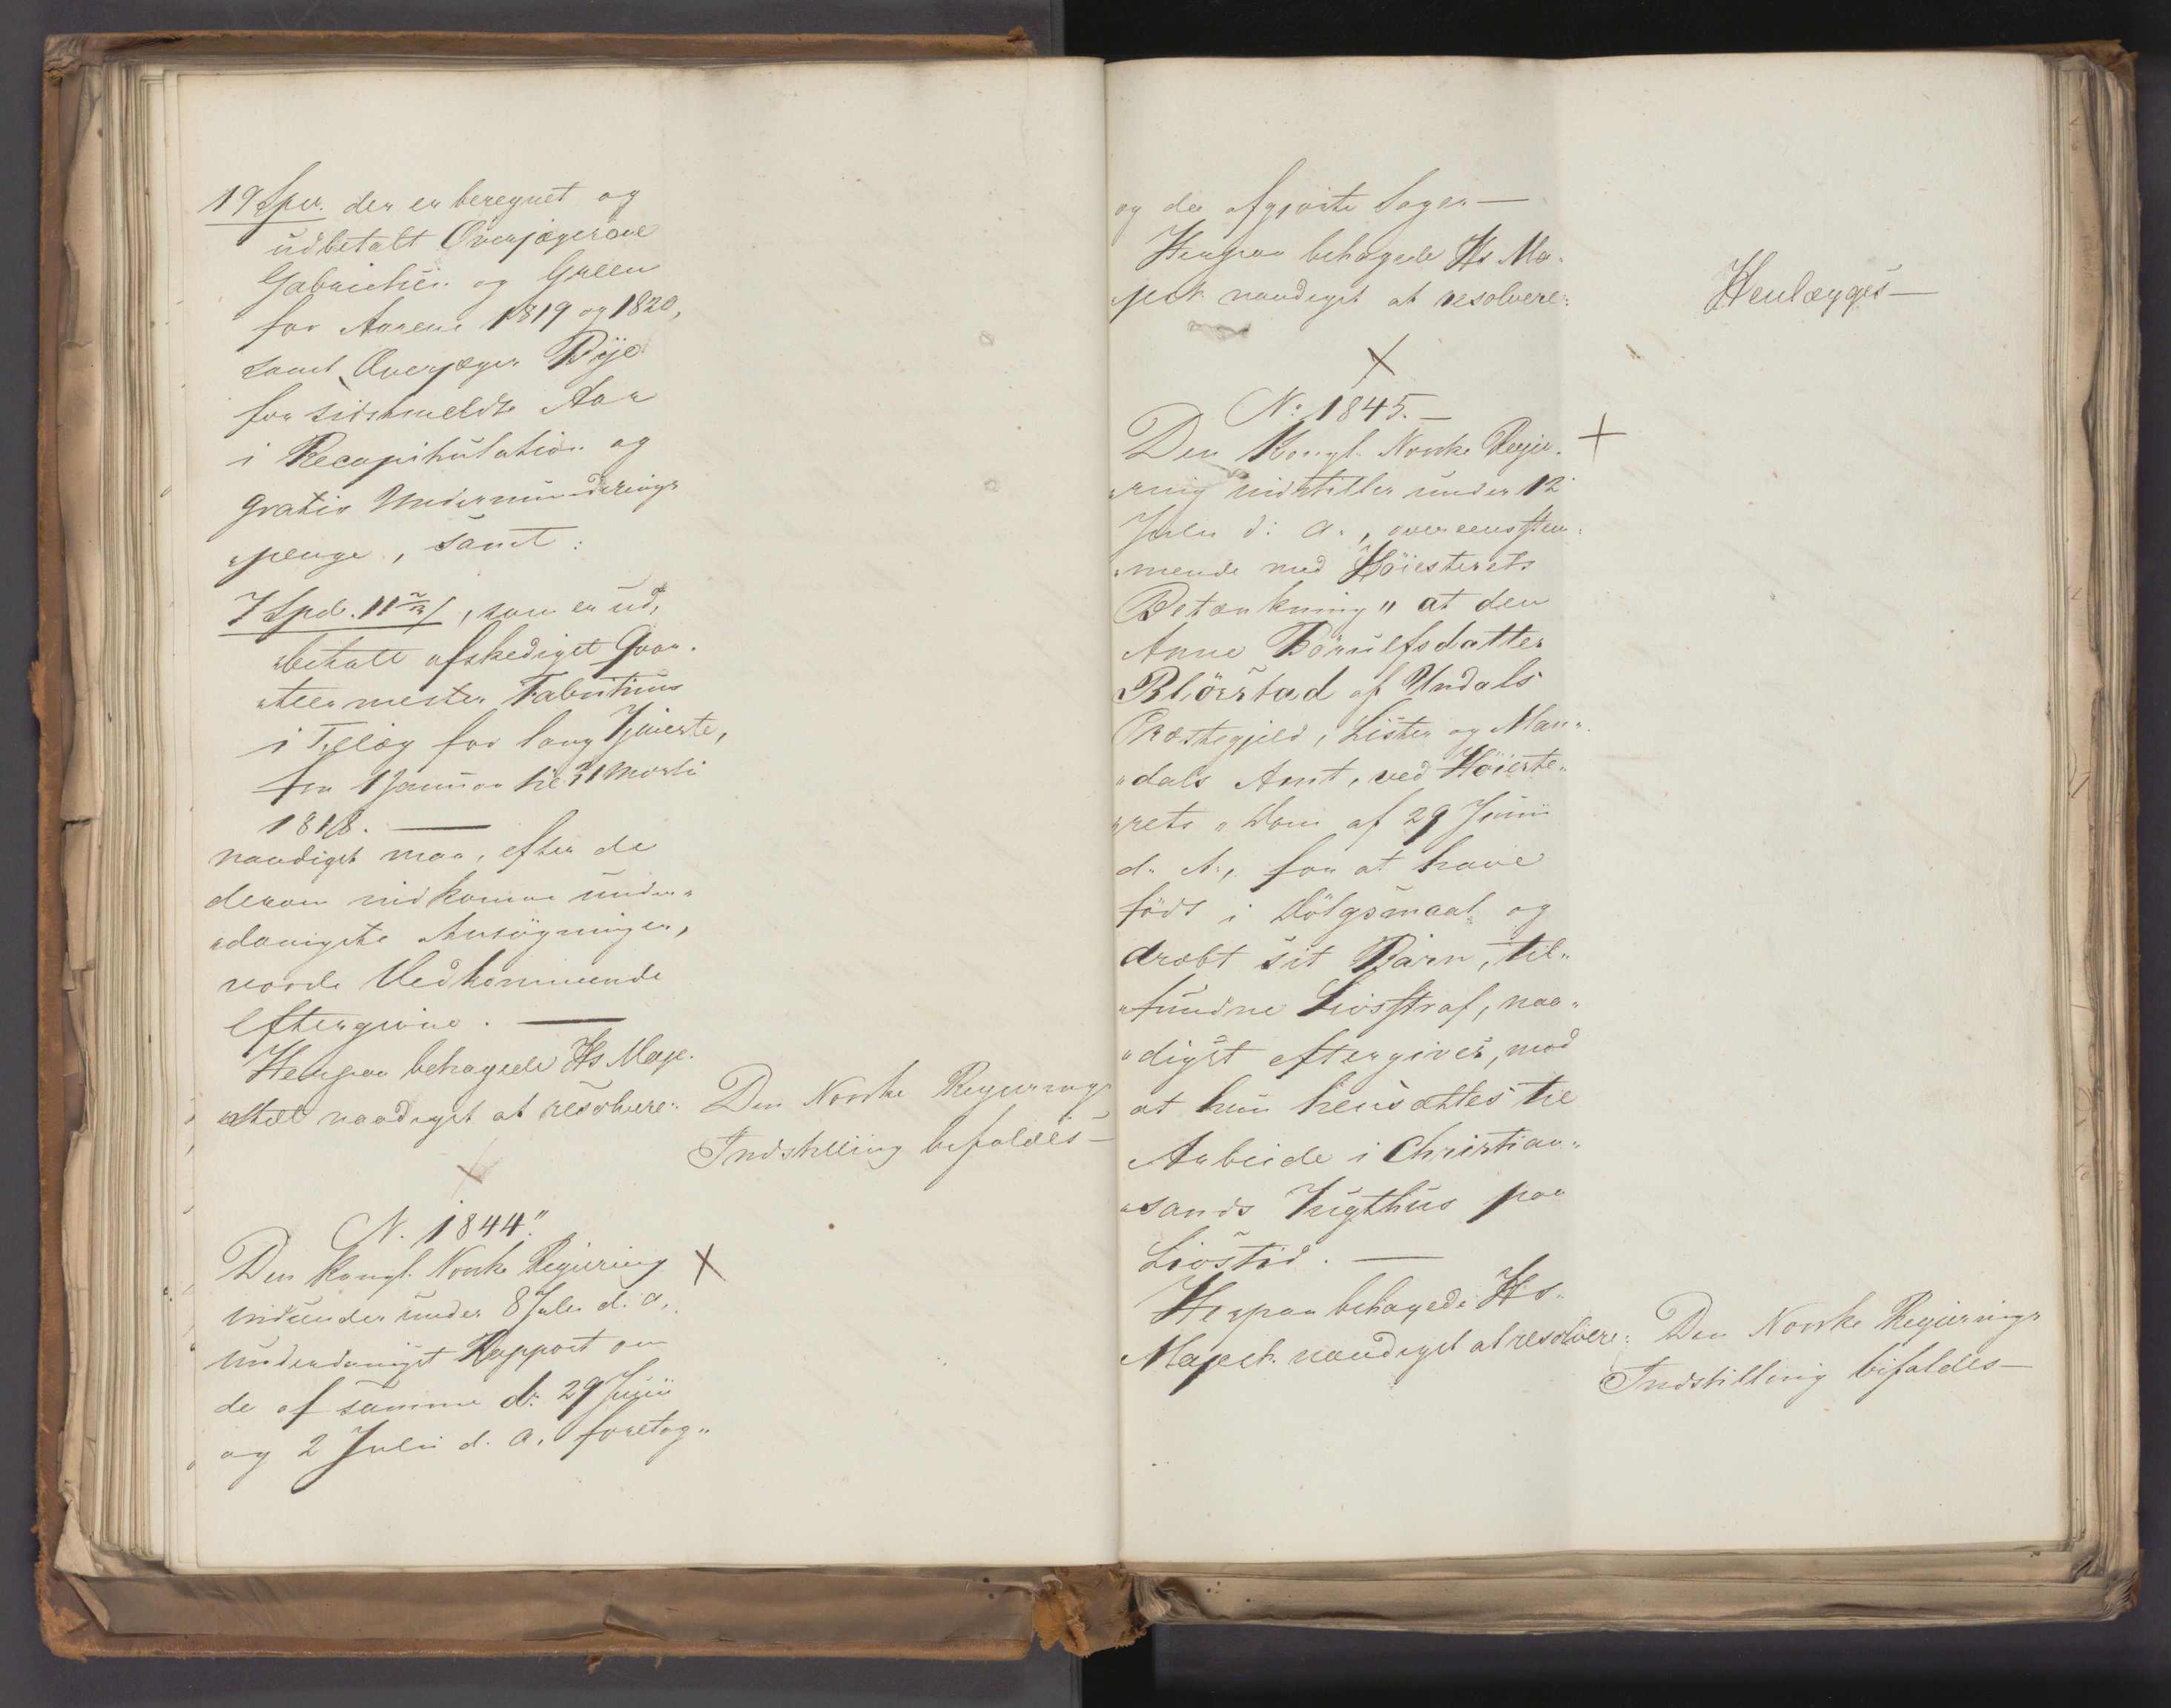 19 Spd. der er beregnet og
udbetalt Overjægerne
Gabrielsen og Green
for Aarene 1819 og 1820,
samt Overjæger Dye
for sidstmeldte Aar
i Recapitulation og
gratis Undermunderings
„penge, samt:
7 Spd. 11 , som er ud„
„betalt afskediget Qvar„
„teermester Fabritius
i Tillæg for lang Tjeneste,
fra 1 Januar til 31 Marti
1818. —
naadigst maa, efter de
derom indkomne under„
„danigste Ansøgninger,
vorde Vedkommende
eftergivne. —
Herpaa behagede Hs Maje„
„stæt naadigst at resolvere:
Den Norske Regjerings
Indstilling bifaldes—
N. 1844.
Den kongl. Norske Regjering
indsender under 8 Juli d. a.
underdanigst Rapport om
de af samme d. 29 Junii
og 2 Julii d. a. foretag„
og der afgjorte Sager—
Herpaa behagede Hs Ma„
jest. naadigst at resolvere:
Henlægges—
No 1845.—
Den Kongl. Norske Regje„
„ring indstiller under 12
Julii d. a., overeensstem„
„mende med Höiesterets
Betænkning, at den
Anne Börnulfsdatter
Blörstad af Undals
Præstegjeld, Lister og Man„
„dals Amt, ved Höieste„
„rets Dom af 29 Junii
d. A., for at have
födt i Dölgsmaal og
dræbt sit Barn, til„
„fundne Livsstraf, naa„
„digst eftergives, mod
at hun hensættes til
Arbeide i Christian„
„sands Tugthus paa
Livstid. —
Herpaa behagede Hs.
Majest. naadigst at resolvere:
Den Norske Regjerings
Indstilling bifaldes—